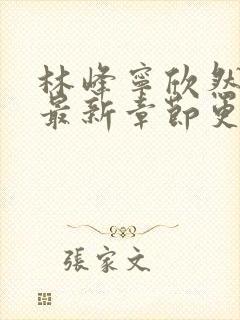 林峰寧欣然
最新章節更
張家文